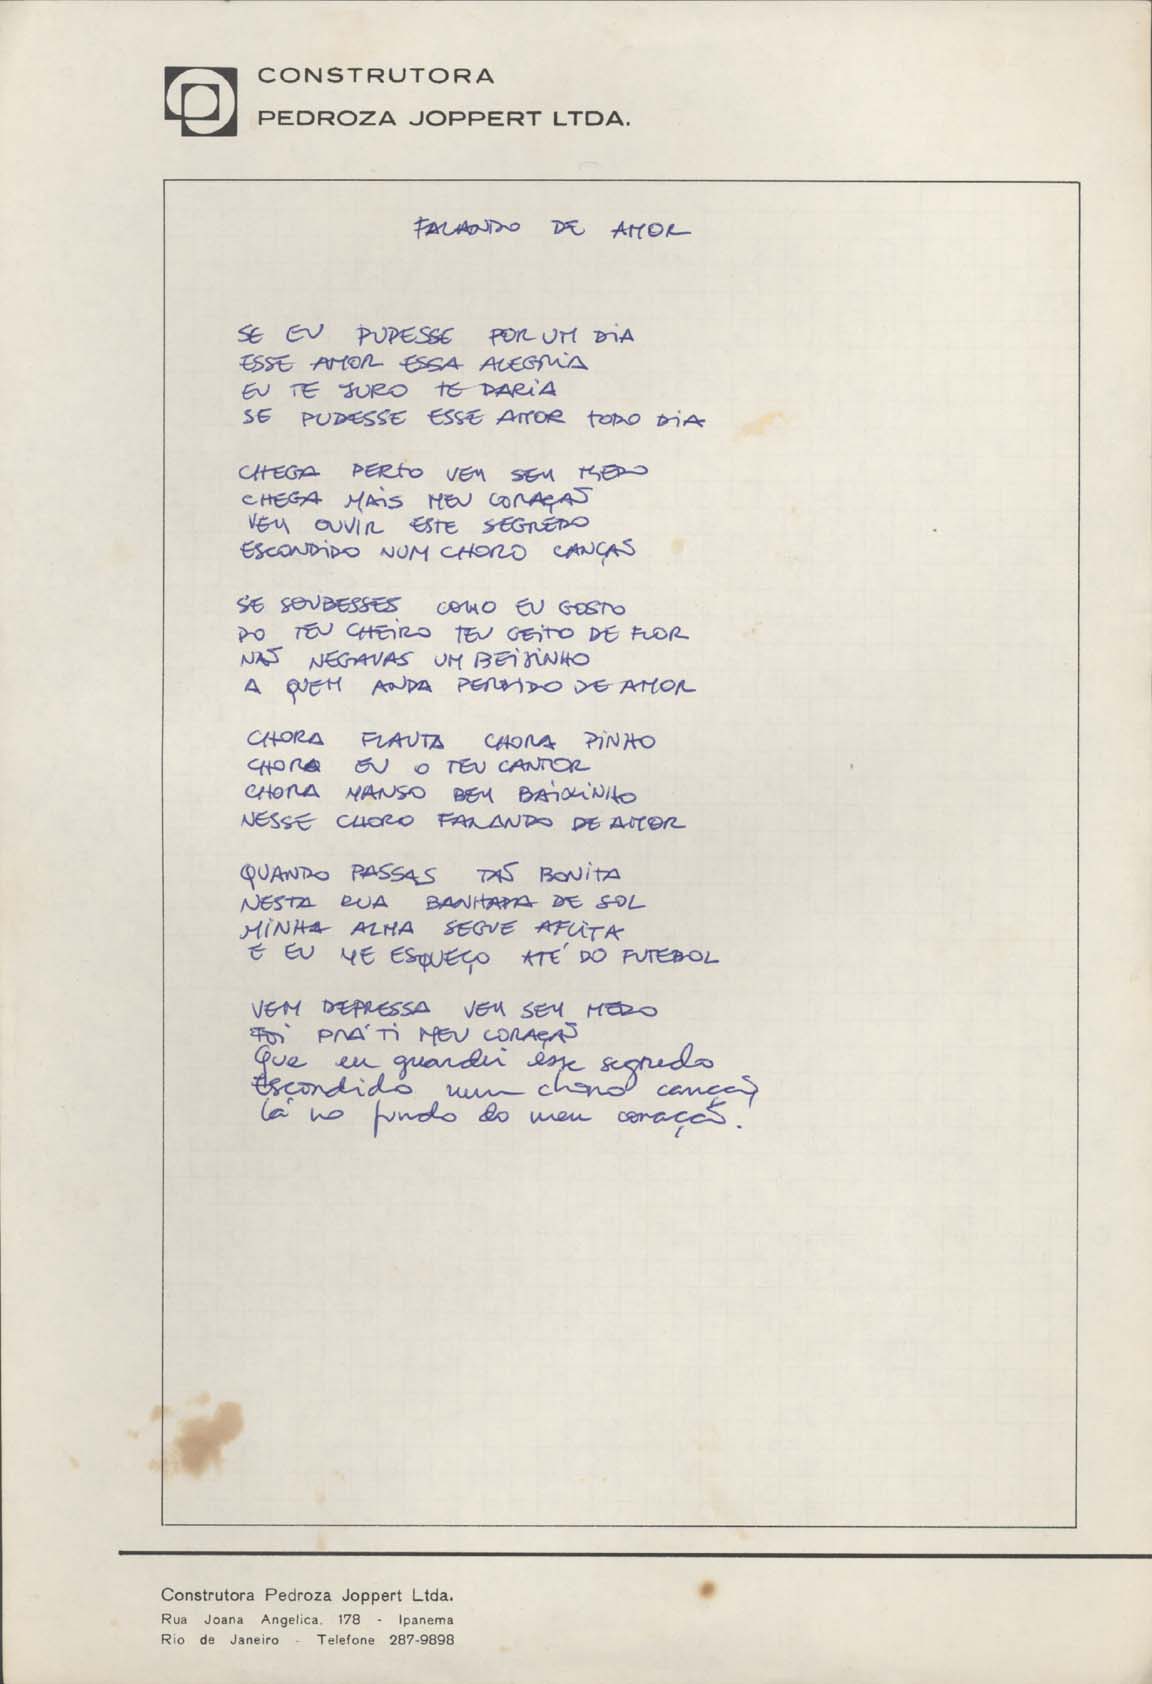 CONSTRUTORA
PEDROZA JOPPERT LTDA.
FALANDO DE AMOR
SE EU PUDESSE POR UM DIA
ESSE AMOR ESSA ALEGRIA
EU TE JURO TE DARIA
SE PUDESSE ESSE AMOR TODO DIA
CHEGA PERTO VEM SEM MEDO
CHEGA MAIS MEU CORAÇÃO
VEM OUVIR ESTE SEGREDO
ESCONDIDO NUM CHORO CANÇÃO
SE SOUBESSES COMO EU GOSTO
DO TEU CHEIRO TEU GEITO DE FLOR
NÃO NEGAVAS UM BEIJINHO
A QUEM ANDA PERDIDO DE AMOR
CHORA FLAUTA CHORA PINHO
CHORO EU O TEU CANTOR
CHORA MANSO BEM BAIXINHO
NESSE CHORO FALANDO DE AMOR
QUANDO PASSAS TÃO BONITA
NESTA RUA BANHADA DE SOL
MINHA ALMA SEGUE AFLITA
E EU ME ESQUEÇO ATÉ DO FUTEBOL
VEM DEPRESSA VEM SEM MEDO
FOI PRÁ TI MEU CORAÇÃO
Que eu guardei esse segredo
Escondido num choro canção
Lá no fundo do meu coração.
Construtora Pedroza Joppert Ltda.
Rua Joana Angelica, 178 - Ipanema
Rio de Janeiro - Telefone 287-9898